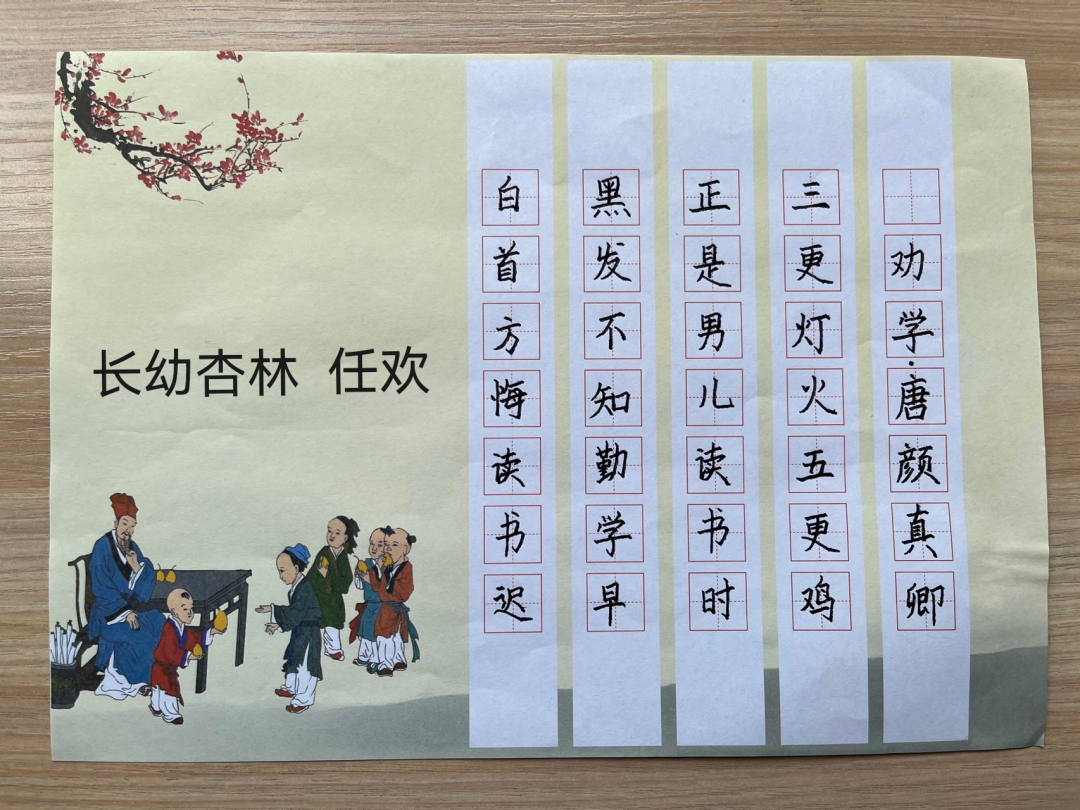 劝学·唐颜真卿
三更灯火五更鸡
正是男儿读书时
黑发不知勤学早
白首方悔读书迟
长幼杏林 任欢